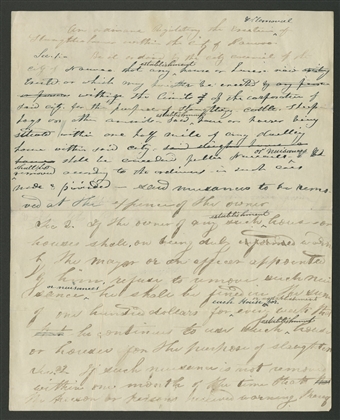 & Removal
An ordinance Regulating the Location of
Slaughterhouses within the City of Kansas
Sec 1st Be it ordained by the city council of the
establishment
city of Kansas that any house or houses now
existed or which may hereafter be erected by any person
or persons within the limits of the corporation of
said city for the purpose of slaughtering cattle sheep
establishment
hogs or other animals said house or houses being
situate within one half mile of any dwelling
house within said city,
or Nuisances
shall be considered public nuisances, and
shall be
removed according to the ordinances in such cases
made & provided – said nuisances to be remov
ed at the expense of the owner
establishment
Sec 2. If the owner of any such house or
houses shall, on being duly
by the mayor or the officer appointed
by him, refuse to remove such nui
or nuisances
sance, he shall be fined in the sum
such House or establishment
of one hundred dollars for every
establishment
that he continues to use such house
or houses for the purpose of slaughtering
If such nuisance is not removed
within one month of the time
the person or persons